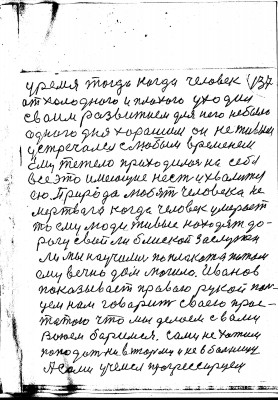 время тогда когда человек 137
от холодного и плохого уходил
своим развитием для него небыло
одного дня хорошим он не
встречался с любым временем
ему тепело приходилоя на себя
все это имеющие нести хвалиту
сю. Природа любят человека не
мертвага когда человек умерает
то ему люди живые находят до-
рогу свой ли близкой заслужил
ли мы научили по плакать потом
ему вечно дом могило. Иванов
показывает праваю рукой
нам говарит своего прос-
тотою что мы делоем с вами
воюем баримся. Сами не хотим
попадат ни в тюрму и не в больницу
А сами учемся прогрессируем